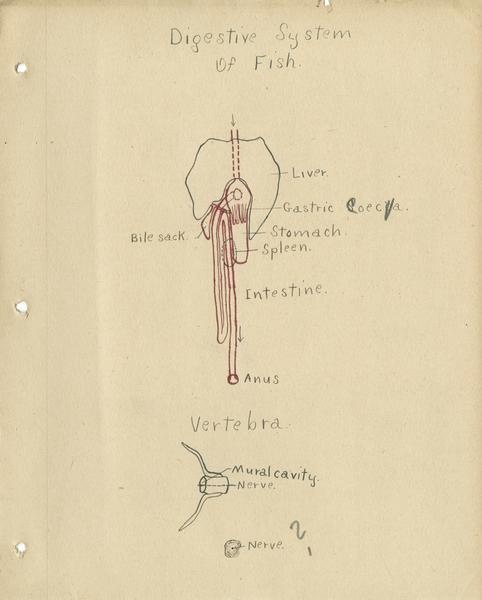 Digestive System
Of Fish.
Liver.
Gastric Coecya.
Bile sack.
Stomach.
Spleen.
Intestine.
Anus
Vertebra.
Mural cavity.
Nerve.
Nerve. ?